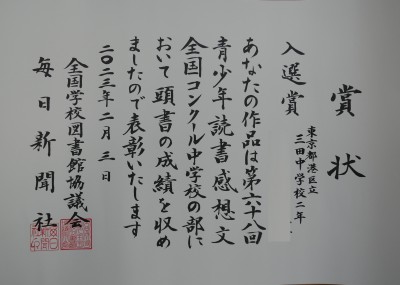 賞状
入選賞
東京都港区立
三田中学校二年
あなたの作品は第六十八回
青少年読書感想文
全国コンクール中学校の部に
おいて頭書の成績を収め
ましたので表彰いたします
二〇二三年二月三日
全国学校図書館協議会
毎日新聞社